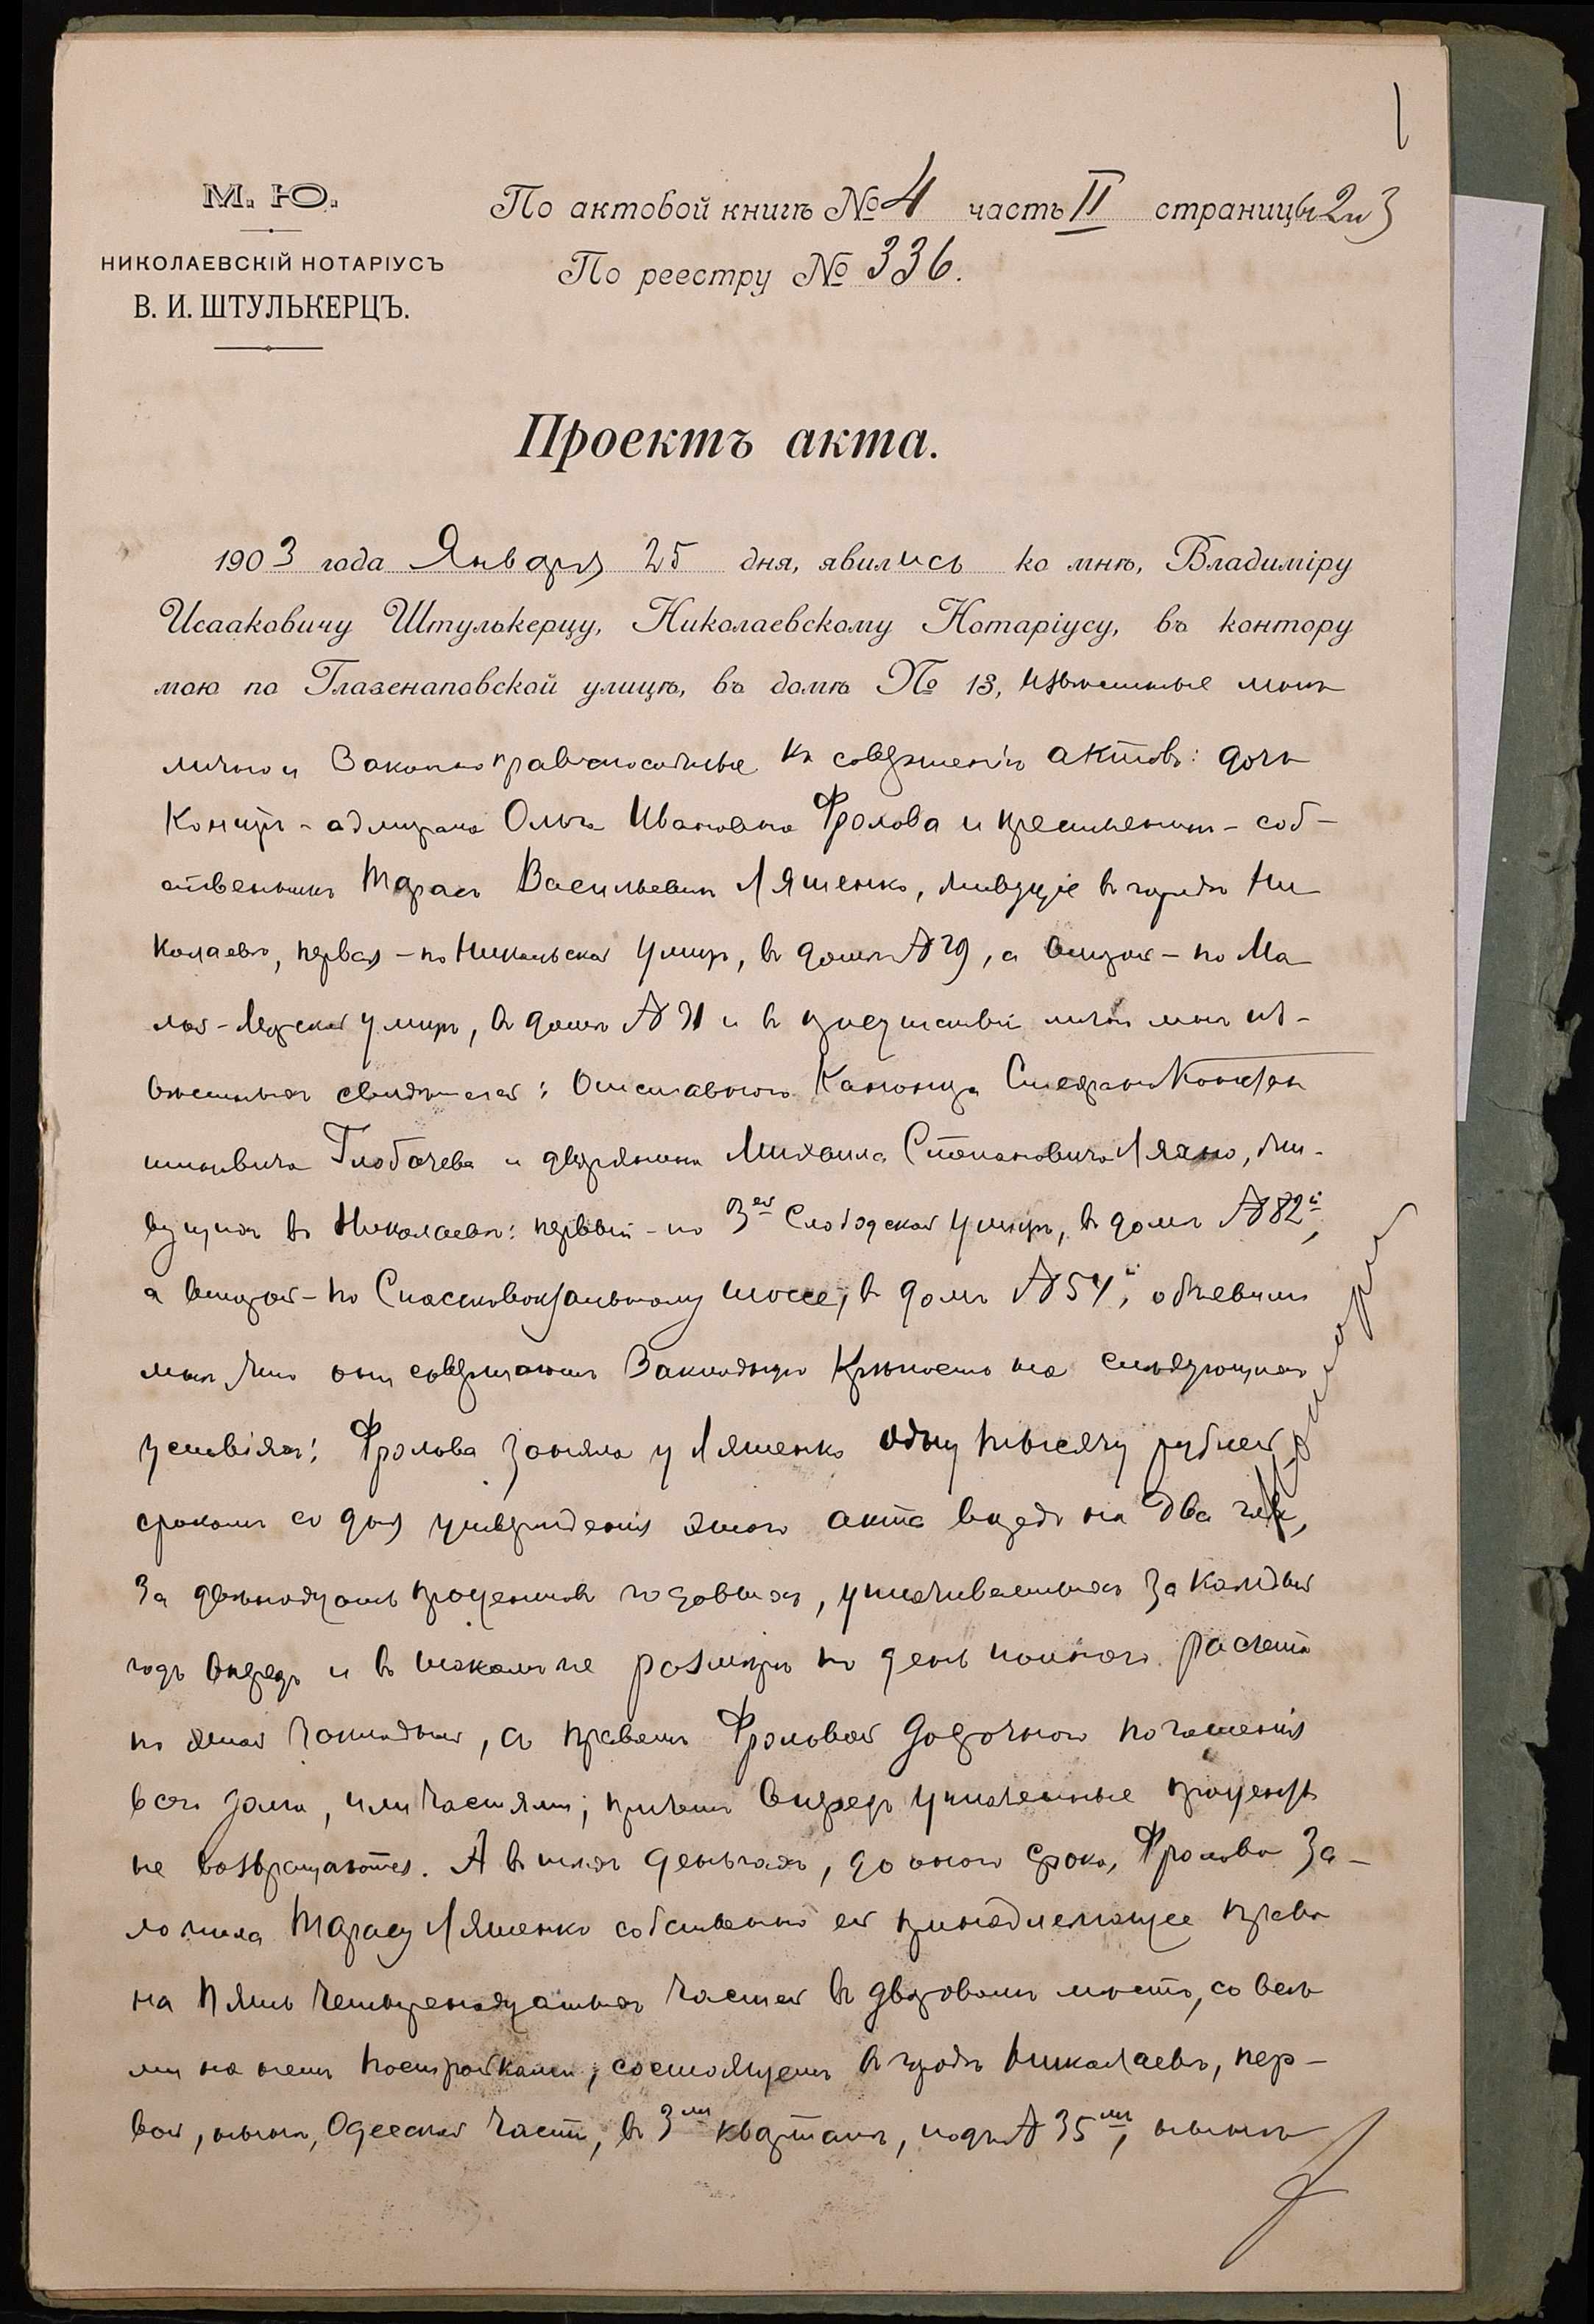 1
М. Ю.
НИКОЛАЕВСКІЙ НОТАРІУСЪ
В. И. ШТУЛЬКЕРЦЪ.
По актовой книгѣ № 4 часть II страницы 2 и 3
По реестру № 336.
Проектъ акта.
1903 года Января 25 дня, явились ко мнѣ, Владиміру
Исааковичу Штулькерцу, Николаевскому Нотаріусу, въ контору
мою по Глазенаповской улицѣ, въ домѣ № 13, извѣстные мнѣ
лично и законно правоспособные къ совершенію актовъ: дочь
Контръ-адмирала Ольга Ивановна Фролова и крестьянинъ-соб-
ственникъ Тарасъ Васильевичъ Ляшенко, живущіе въ городѣ Ни
колаевѣ, первая - по Никольской улицѣ, въ домѣ № 29, а второй - по Ма
лой-Морской улицѣ, въ домѣ № 31 и въ присутствіи лично мнѣ из-
вѣстныхъ свидѣтелей: Отставного Стефана Констан
тиновича Глобачева и дворянина Михаила Степановича Ляхно, жи-
вущихъ въ Николаевѣ: первый - по 3ей Слободской улицѣ, въ домѣ № 82й,
а второй - по Спасковокзальному шоссе, въ домѣ № 54й, объявили
мнѣ, что они совершаютъ Закладную Крѣпость на слѣдующихъ
условіяхъ: Фролова заняла у Ляшенко одну тысячу рублей,
срокомъ со дня утвержденія этого акта впредь на два года,
за двѣнадцать процентовъ годовыхъ, уплачиваемыхъ за каждый
годъ впередъ и въ такомъ же размѣрѣ по день полнаго расчета
по этой закладной, съ правомъ Фроловой досрочнаго погашенія
всего займа, или частями; причемъ впередъ уплаченные проценты
не возвращаются. А въ тѣхъ деньгахъ, до оного срока, Фролова за-
ложила Тарасу Ляшенко собственно ей принадлежащее право
на пять четырнадцатыхъ частей въ дворовомъ мѣстѣ, со всѣ
ми на немъ постройками, состоящемъ въ городѣ Николаевѣ, пер-
вой, нынѣ, Одесской части, въ 3мъ кварталѣ, подъ № 35мъ, нынѣ